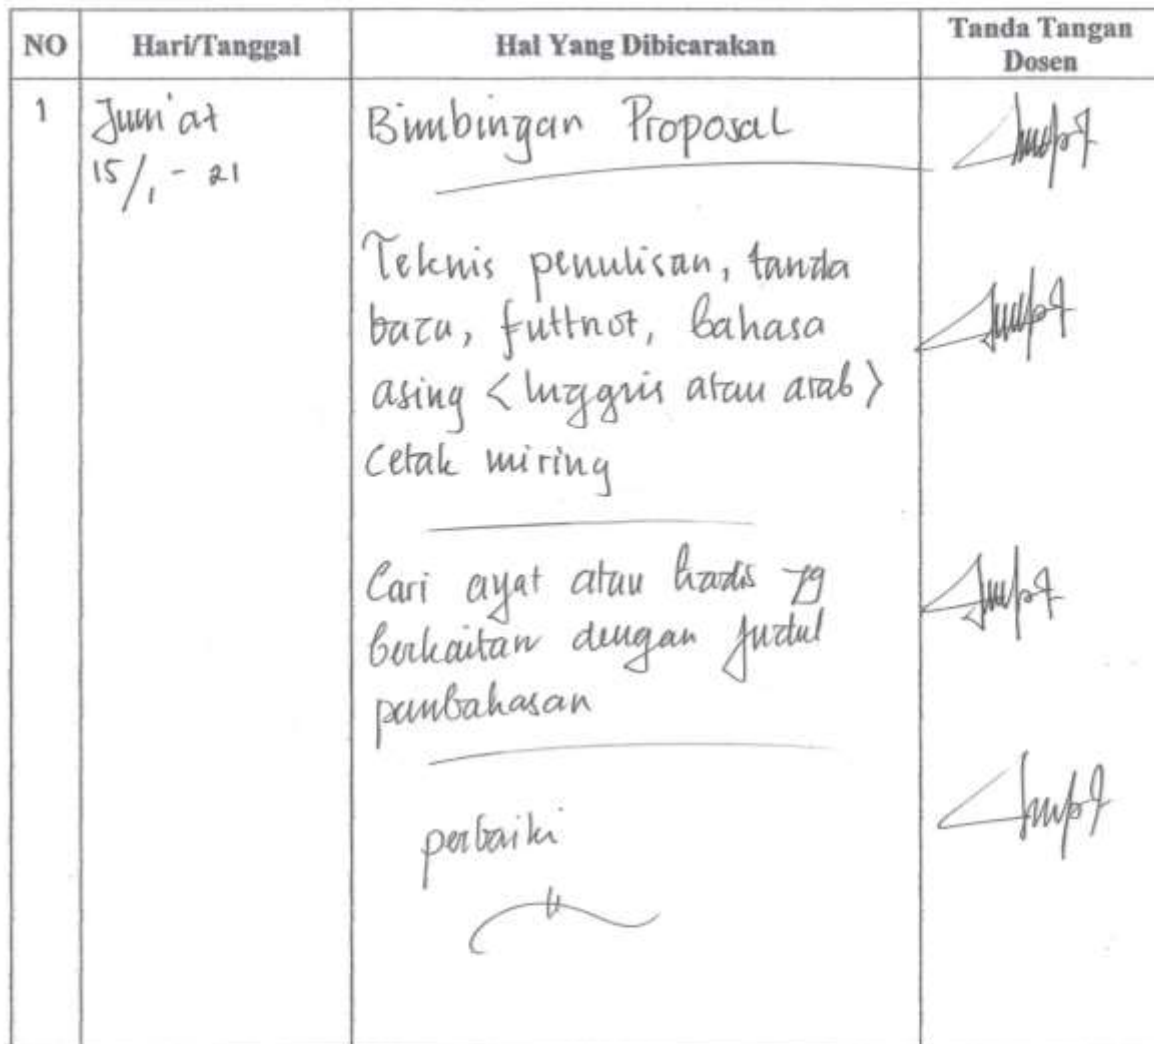 NO Hari/Tanggal Hal Yang Dibicarakan Tanda Tangan Dosen
1 Jum'at Bimbingan Proposal
15/1 - 21
Teknis penulisan, tanda
baca, futtnot, bahasa
asing <Inggris atau arab>
cetak miring
Cari ayat atau hadis yg
berkaitan dengan judul
pembahasan
perbaiki